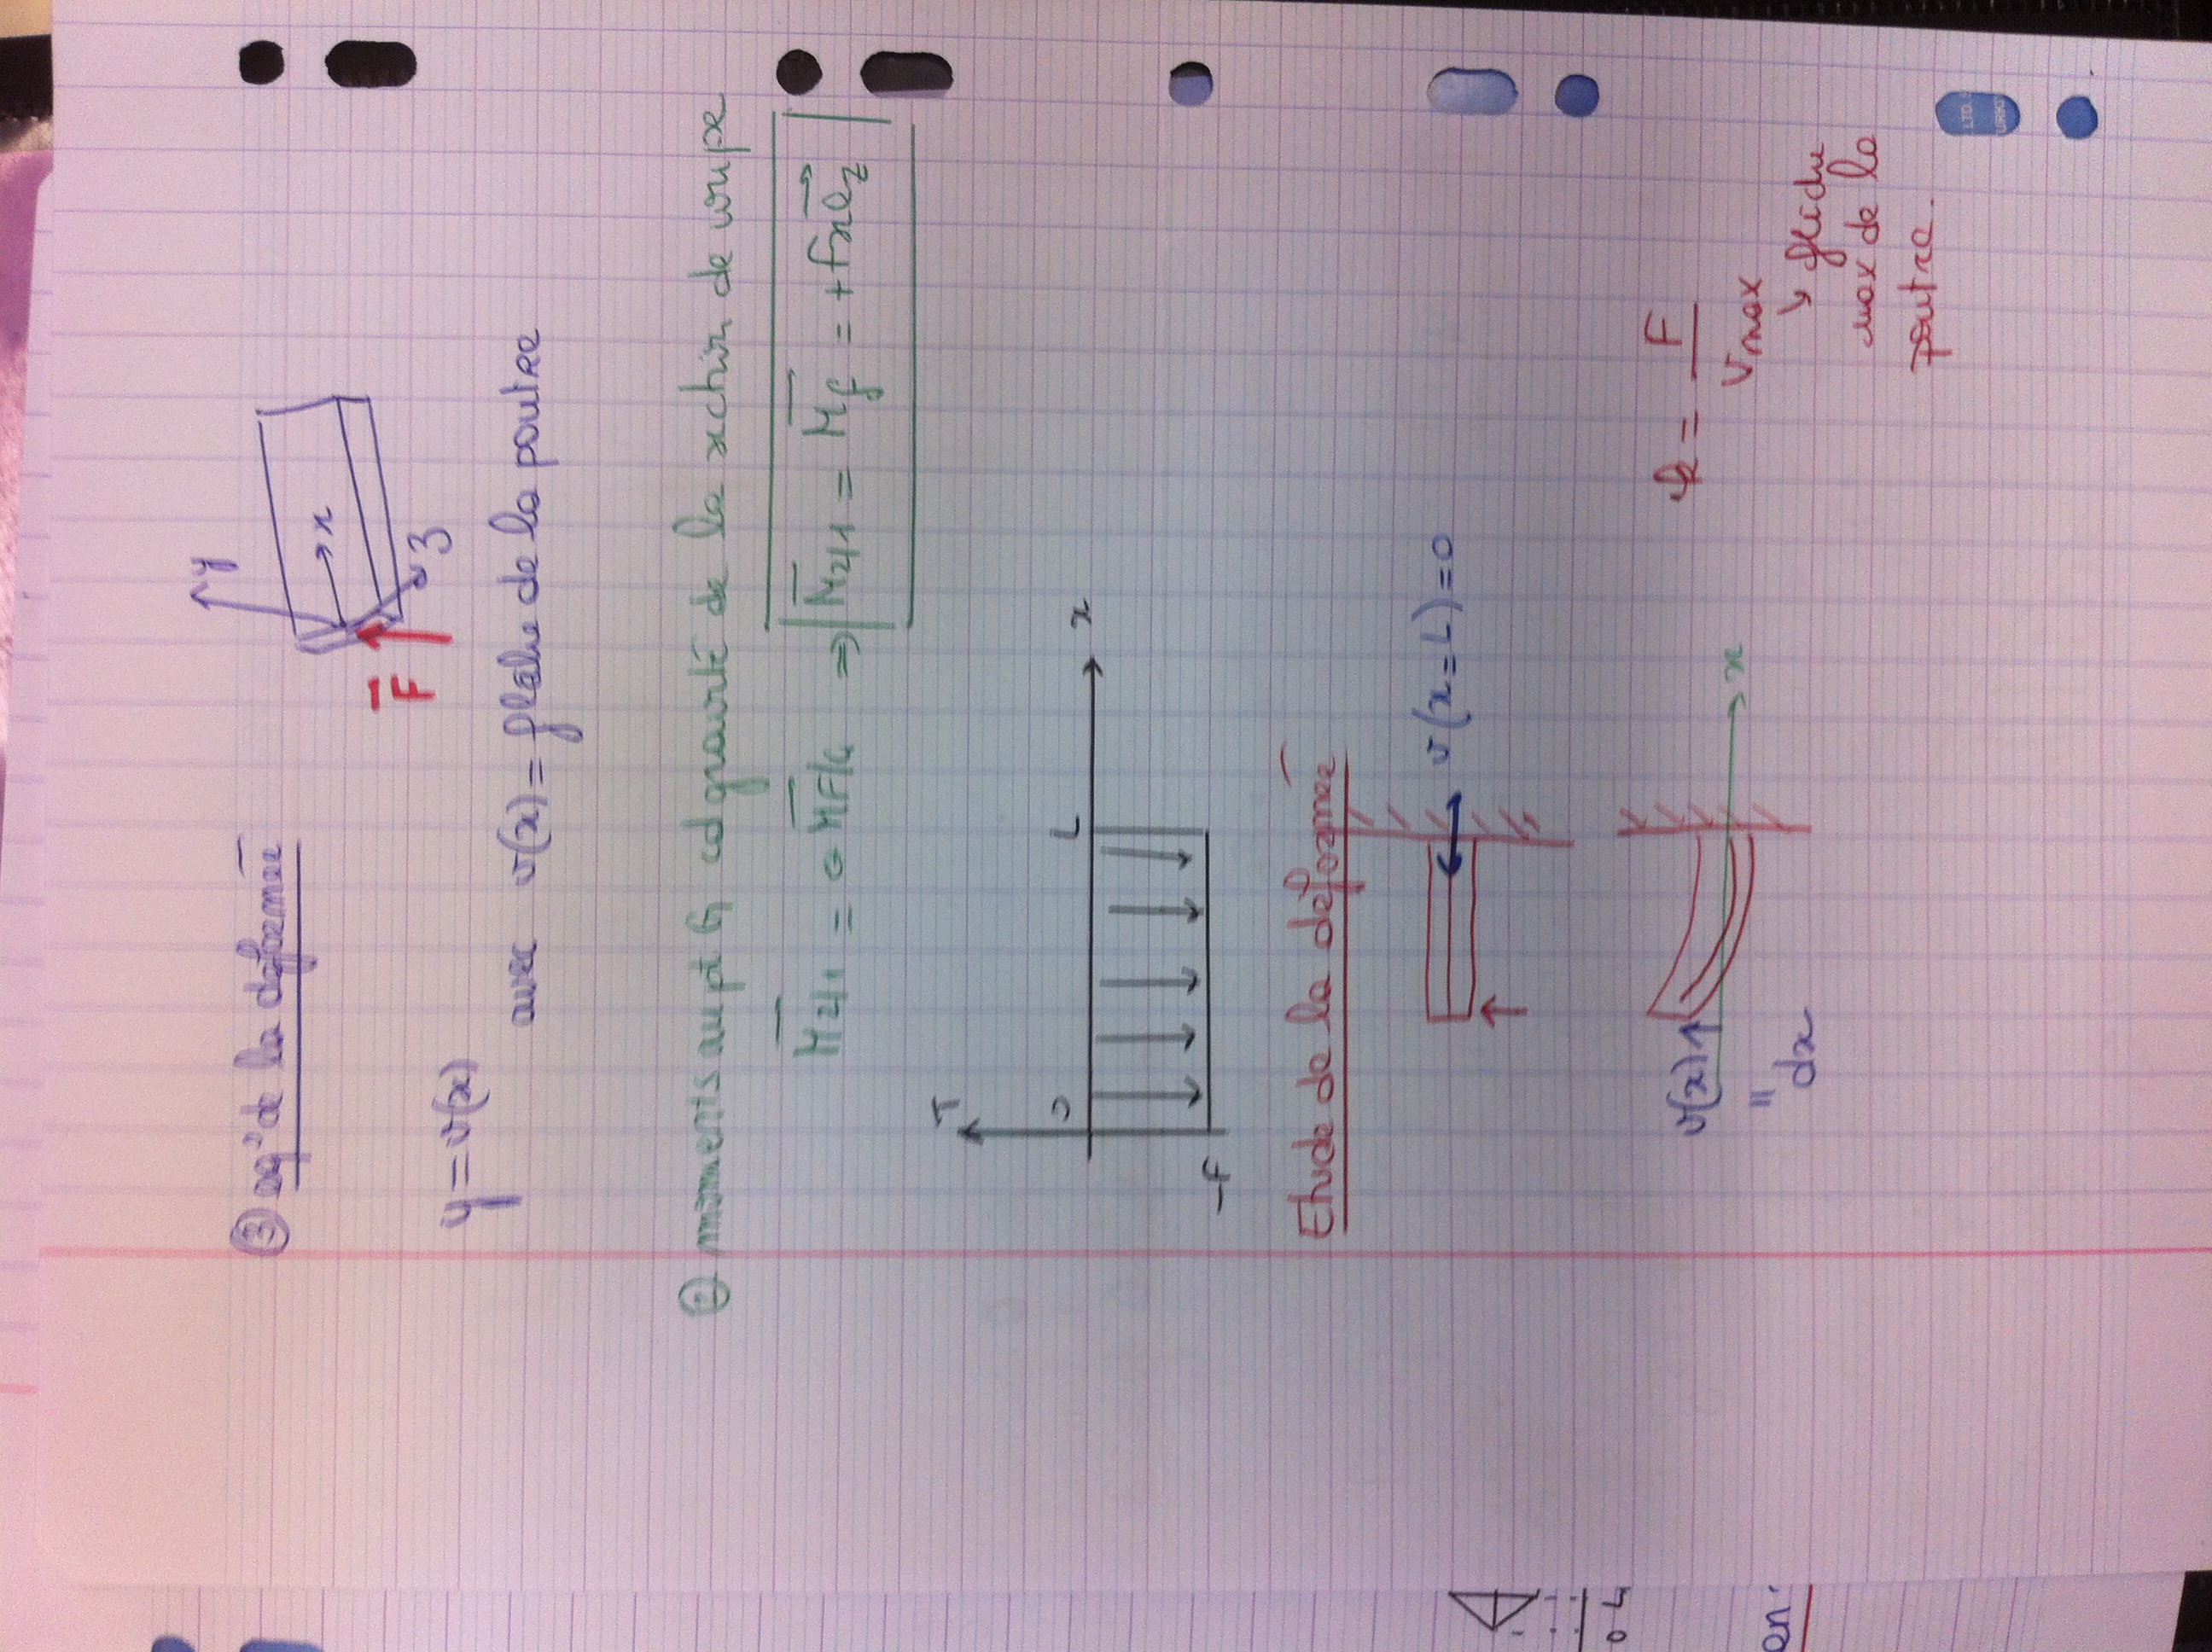 ③ eq° de la déformée
y
x
F
z
y = v(x)
avec v(x) = flèche de la poutre
② moments au pt G cd gravité de la section de coupe
M2/1 = ⊖ MF/G ⇒ M2/1 = Mf = +Fx ez
T
O L x
-F
Etude de la déformée
v(x=L)=0
O L
v(x)
x
"
dx
k = F / vmax
↳ flèche
max de la
poutre.
en
LTD.